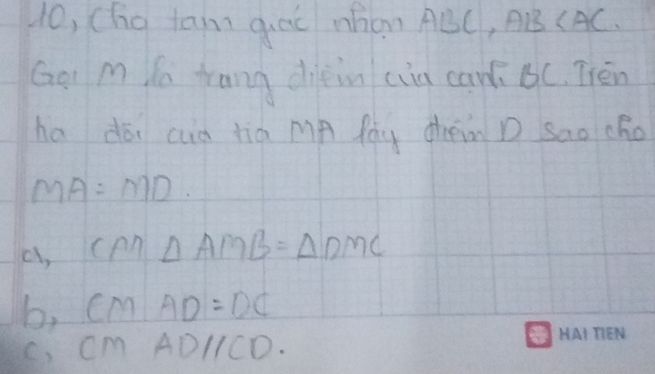 10, Cho tam giác nhọn ABC, AB < AC.
Gọi M là trung điểm của cạnh BC. Trên
tia đối của tia MA lấy điểm D sao cho
MA = MD.
a, CM Δ AMB = Δ DMC
b, CM AD = DC
c, CM AD // CD.
HẢI TIẾN